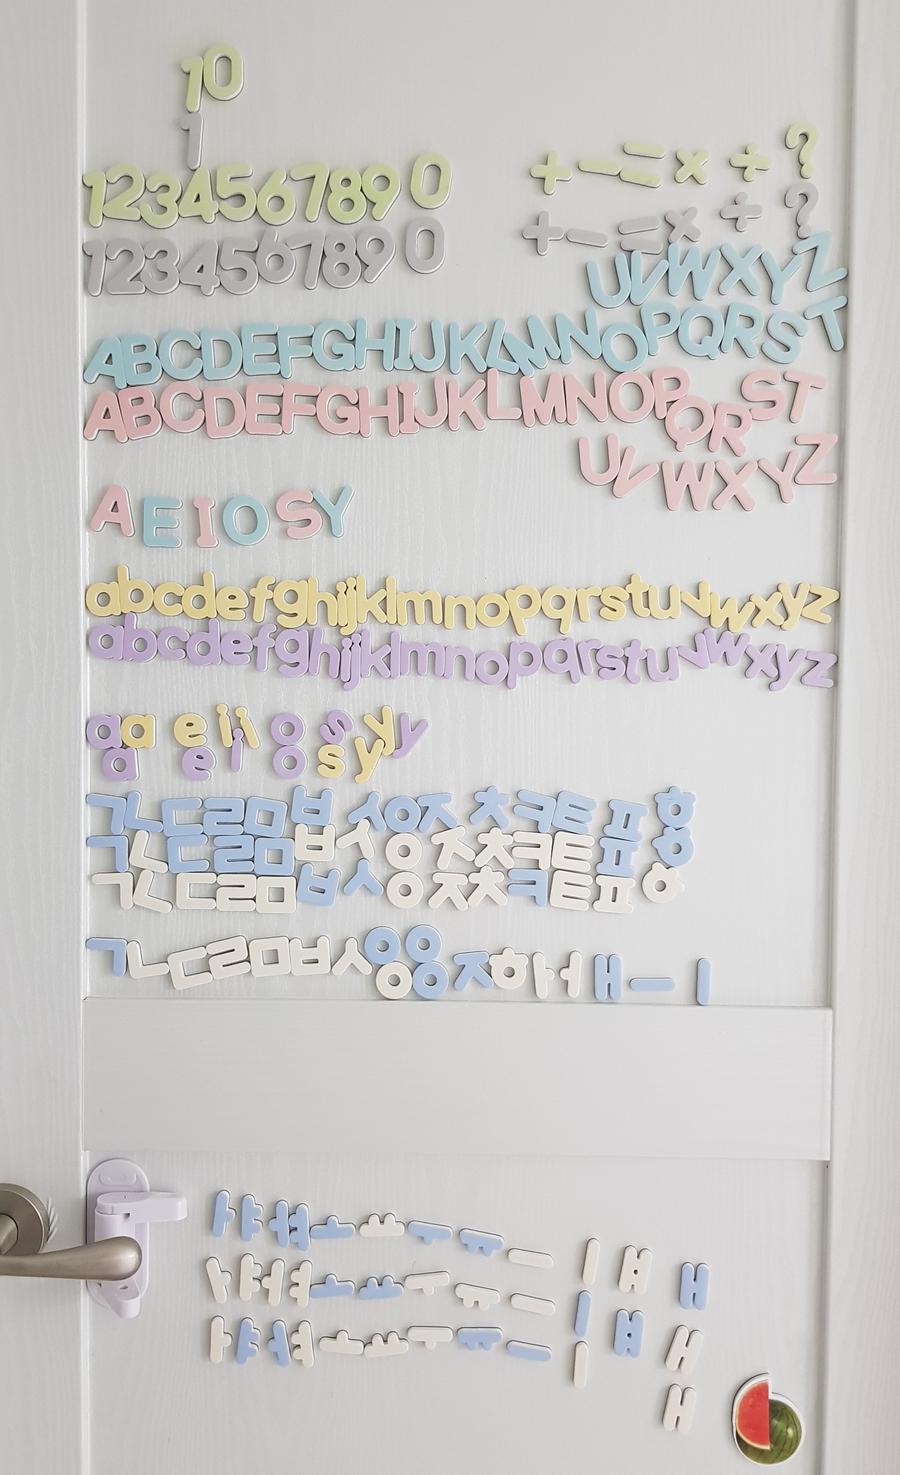 10
1
1234567890 + - = × ÷ ?
1234567890 + - = × ÷ ?
UVWXYZ
ABCDEFGHIJKLMNOPQRST
ABCDEFGHIJKLMNOPQRST
UVWXYZ
AEIOSY
abcdefghijklmnopqrstuvwxyz
abcdefghijklmnopqrstuvwxyz
aa e ii o s yy
a e i o s y
ㄱㄴㄷㄹㅁㅂㅅㅇㅈㅊㅋㅌㅍㅎ
ㄱㄴㄷㄹㅁㅂㅅㅇㅈㅊㅋㅌㅍㅎ
ㄱㄴㄷㄹㅁㅂㅅㅇㅈㅊㅋㅌㅍㅎ
ㄱㄴㄷㄹㅁㅂㅅㅇㅇㅈㅎㅏㅓㅐㅡㅣ
ㅇㅇ
ㅏㅑㅓㅕㅗㅛㅜㅠㅡㅣㅒㅐ
ㅏㅑㅓㅕㅗㅛㅜㅠㅡㅣㅒㅐ
ㅏㅑㅓㅕㅗㅛㅜㅠㅡㅣㅐ